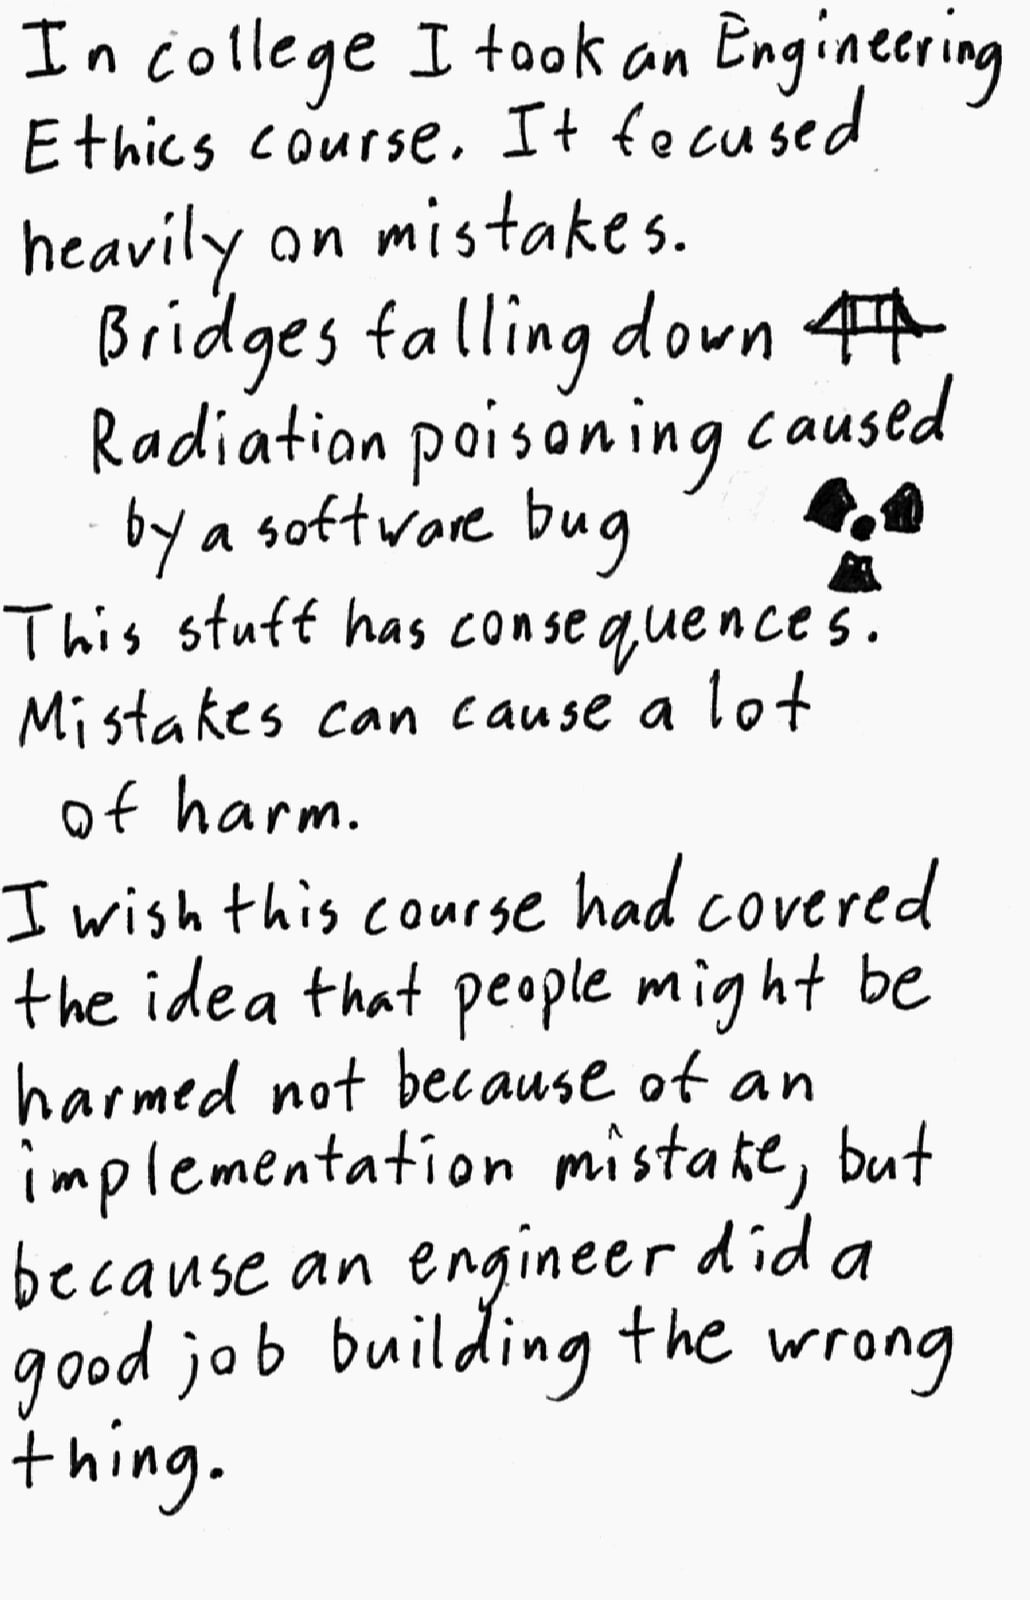 In college I took an Engineering
Ethics course. It focused
heavily on mistakes.
Bridges falling down
Radiation poisoning caused
by a software bug
This stuff has consequences.
Mistakes can cause a lot
of harm.
I wish this course had covered
the idea that people might be
harmed not because of an
implementation mistake, but
because an engineer did a
good job building the wrong
thing.